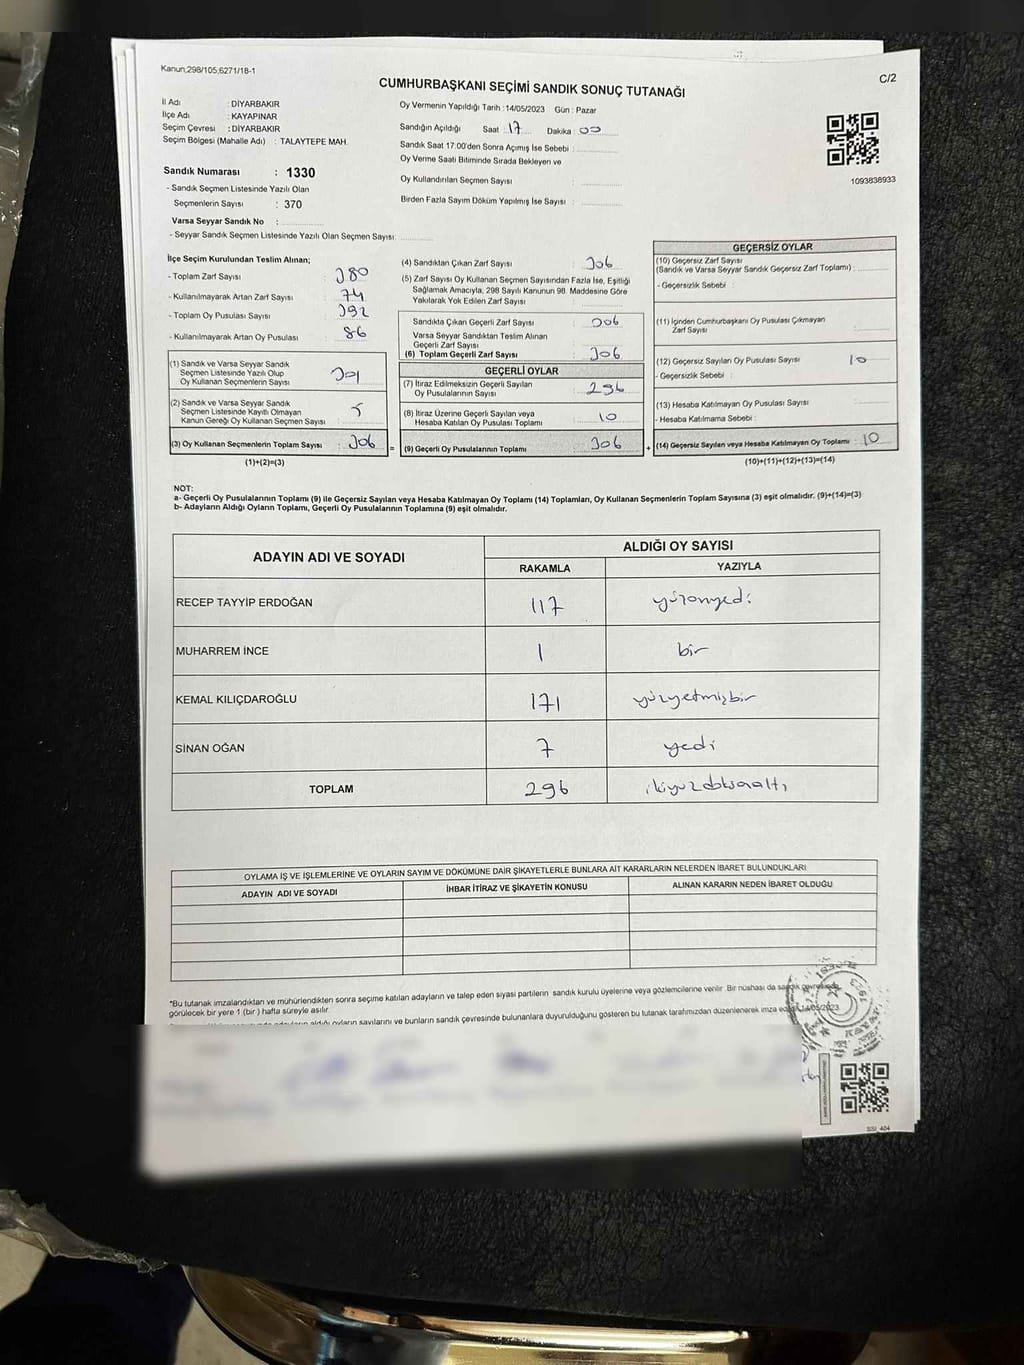 Kanun,298/105,6271/18-1
C/2
CUMHURBAŞKANI SEÇİMİ SANDIK SONUÇ TUTANAĞI
İl Adı : DİYARBAKIR
İlçe Adı : KAYAPINAR
Seçim Çevresi : DİYARBAKIR
Seçim Bölgesi (Mahalle Adı) : TALAYTEPE MAH.
Oy Vermenin Yapıldığı Tarih : 14/05/2023 Gün : Pazar
Sandığın Açıldığı Saat 17 Dakika 00
Sandık Saat 17:00'den Sonra Açımış İse Sebebi :
Oy Verme Saati Bitiminde Sırada Bekleyen ve
Oy Kullandırılan Seçmen Sayısı :
Birden Fazla Sayım Döküm Yapılmış İse Sayısı :
1093838933
Sandık Numarası : 1330
- Sandık Seçmen Listesinde Yazılı Olan
Seçmenlerin Sayısı : 370
Varsa Seyyar Sandık No :
- Seyyar Sandık Seçmen Listesinde Yazılı Olan Seçmen Sayısı:
İlçe Seçim Kurulundan Teslim Alınan;
- Toplam Zarf Sayısı : 380
- Kullanılmayarak Artan Zarf Sayısı : 74
- Toplam Oy Pusulası Sayısı : 392
- Kullanılmayarak Artan Oy Pusulası : 86
(1) Sandık ve Varsa Seyyar Sandık
Seçmen Listesinde Yazılı Olup
Oy Kullanan Seçmenlerin Sayısı : 301
(2) Sandık ve Varsa Seyyar Sandık
Seçmen Listesinde Kayıtlı Olmayan
Kanun Gereği Oy Kullanan Seçmen Sayısı : 5
(3) Oy Kullanan Seçmenlerin Toplam Sayısı : 306
(1)+(2)=(3)
(4) Sandıktan Çıkan Zarf Sayısı : 306
(5) Zarf Sayısı Oy Kullanan Seçmen Sayısından Fazla İse, Eşitliği
Sağlamak Amacıyla, 298 Sayılı Kanunun 98. Maddesine Göre
Yakılarak Yok Edilen Zarf Sayısı :
Sandıkta Çıkan Geçerli Zarf Sayısı : 306
Varsa Seyyar Sandıktan Teslim Alınan
Geçerli Zarf Sayısı :
(6) Toplam Geçerli Zarf Sayısı : 306
GEÇERLİ OYLAR
(7) İtiraz Edilmeksizin Geçerli Sayılan
Oy Pusulalarının Sayısı : 296
(8) İtiraz Üzerine Geçerli Sayılan veya
Hesaba Katılan Oy Pusulası Toplamı : 10
= (9) Geçerli Oy Pusulalarının Toplamı : 306
GEÇERSİZ OYLAR
(10) Geçersiz Zarf Sayısı
(Sandık ve Varsa Seyyar Sandık Geçersiz Zarf Toplamı) :
- Geçersizlik Sebebi :
(11) İçinden Cumhurbaşkanı Oy Pusulası Çıkmayan
Zarf Sayısı :
(12) Geçersiz Sayılan Oy Pusulası Sayısı : 10
- Geçersizlik Sebebi :
(13) Hesaba Katılmayan Oy Pusulası Sayısı :
- Hesaba Katılmama Sebebi :
+ (14) Geçersiz Sayılan veya Hesaba Katılmayan Oy Toplamı : 10
(10)+(11)+(12)+(13)=(14)
NOT:
a- Geçerli Oy Pusulalarının Toplamı (9) ile Geçersiz Sayılan veya Hesaba Katılmayan Oy Toplamı (14) Toplamları, Oy Kullanan Seçmenlerin Toplam Sayısına (3) eşit olmalıdır. (9)+(14)=(3)
b- Adayların Aldığı Oyların Toplamı, Geçerli Oy Pusulalarının Toplamına (9) eşit olmalıdır.
ADAYIN ADI VE SOYADI
ALDIĞI OY SAYISI
RAKAMLA YAZIYLA
RECEP TAYYİP ERDOĞAN 117 yüzonyedi
MUHARREM İNCE 1 bir
KEMAL KILIÇDAROĞLU 171 yüzyetmişbir
SİNAN OĞAN 7 yedi
TOPLAM 296 ikiyüzdoksanaltı
OYLAMA İŞ VE İŞLEMLERİNE VE OYLARIN SAYIM VE DÖKÜMÜNE DAİR ŞİKAYETLERLE BUNLARA AİT KARARLARIN NELERDEN İBARET BULUNDUKLARI
ADAYIN ADI VE SOYADI İHBAR İTİRAZ VE ŞİKAYETİN KONUSU ALINAN KARARIN NEDEN İBARET OLDUĞU
*Bu tutanak imzalandıktan ve mühürlendikten sonra seçime katılan adayların ve talep eden siyasi partilerin sandık kurulu üyelerine veya gözlemcilerine verilir. Bir nüshası da sandık çevresinde
görülecek bir yere 1 (bir) hafta süreyle asılır.
adayların aldığı oyların sayılarını ve bunların sandık çevresinde bulunanlara duyurulduğunu gösteren bu tutanak tarafımızdan düzenlenerek imza edildi. 14/05/2023
SSİ_404